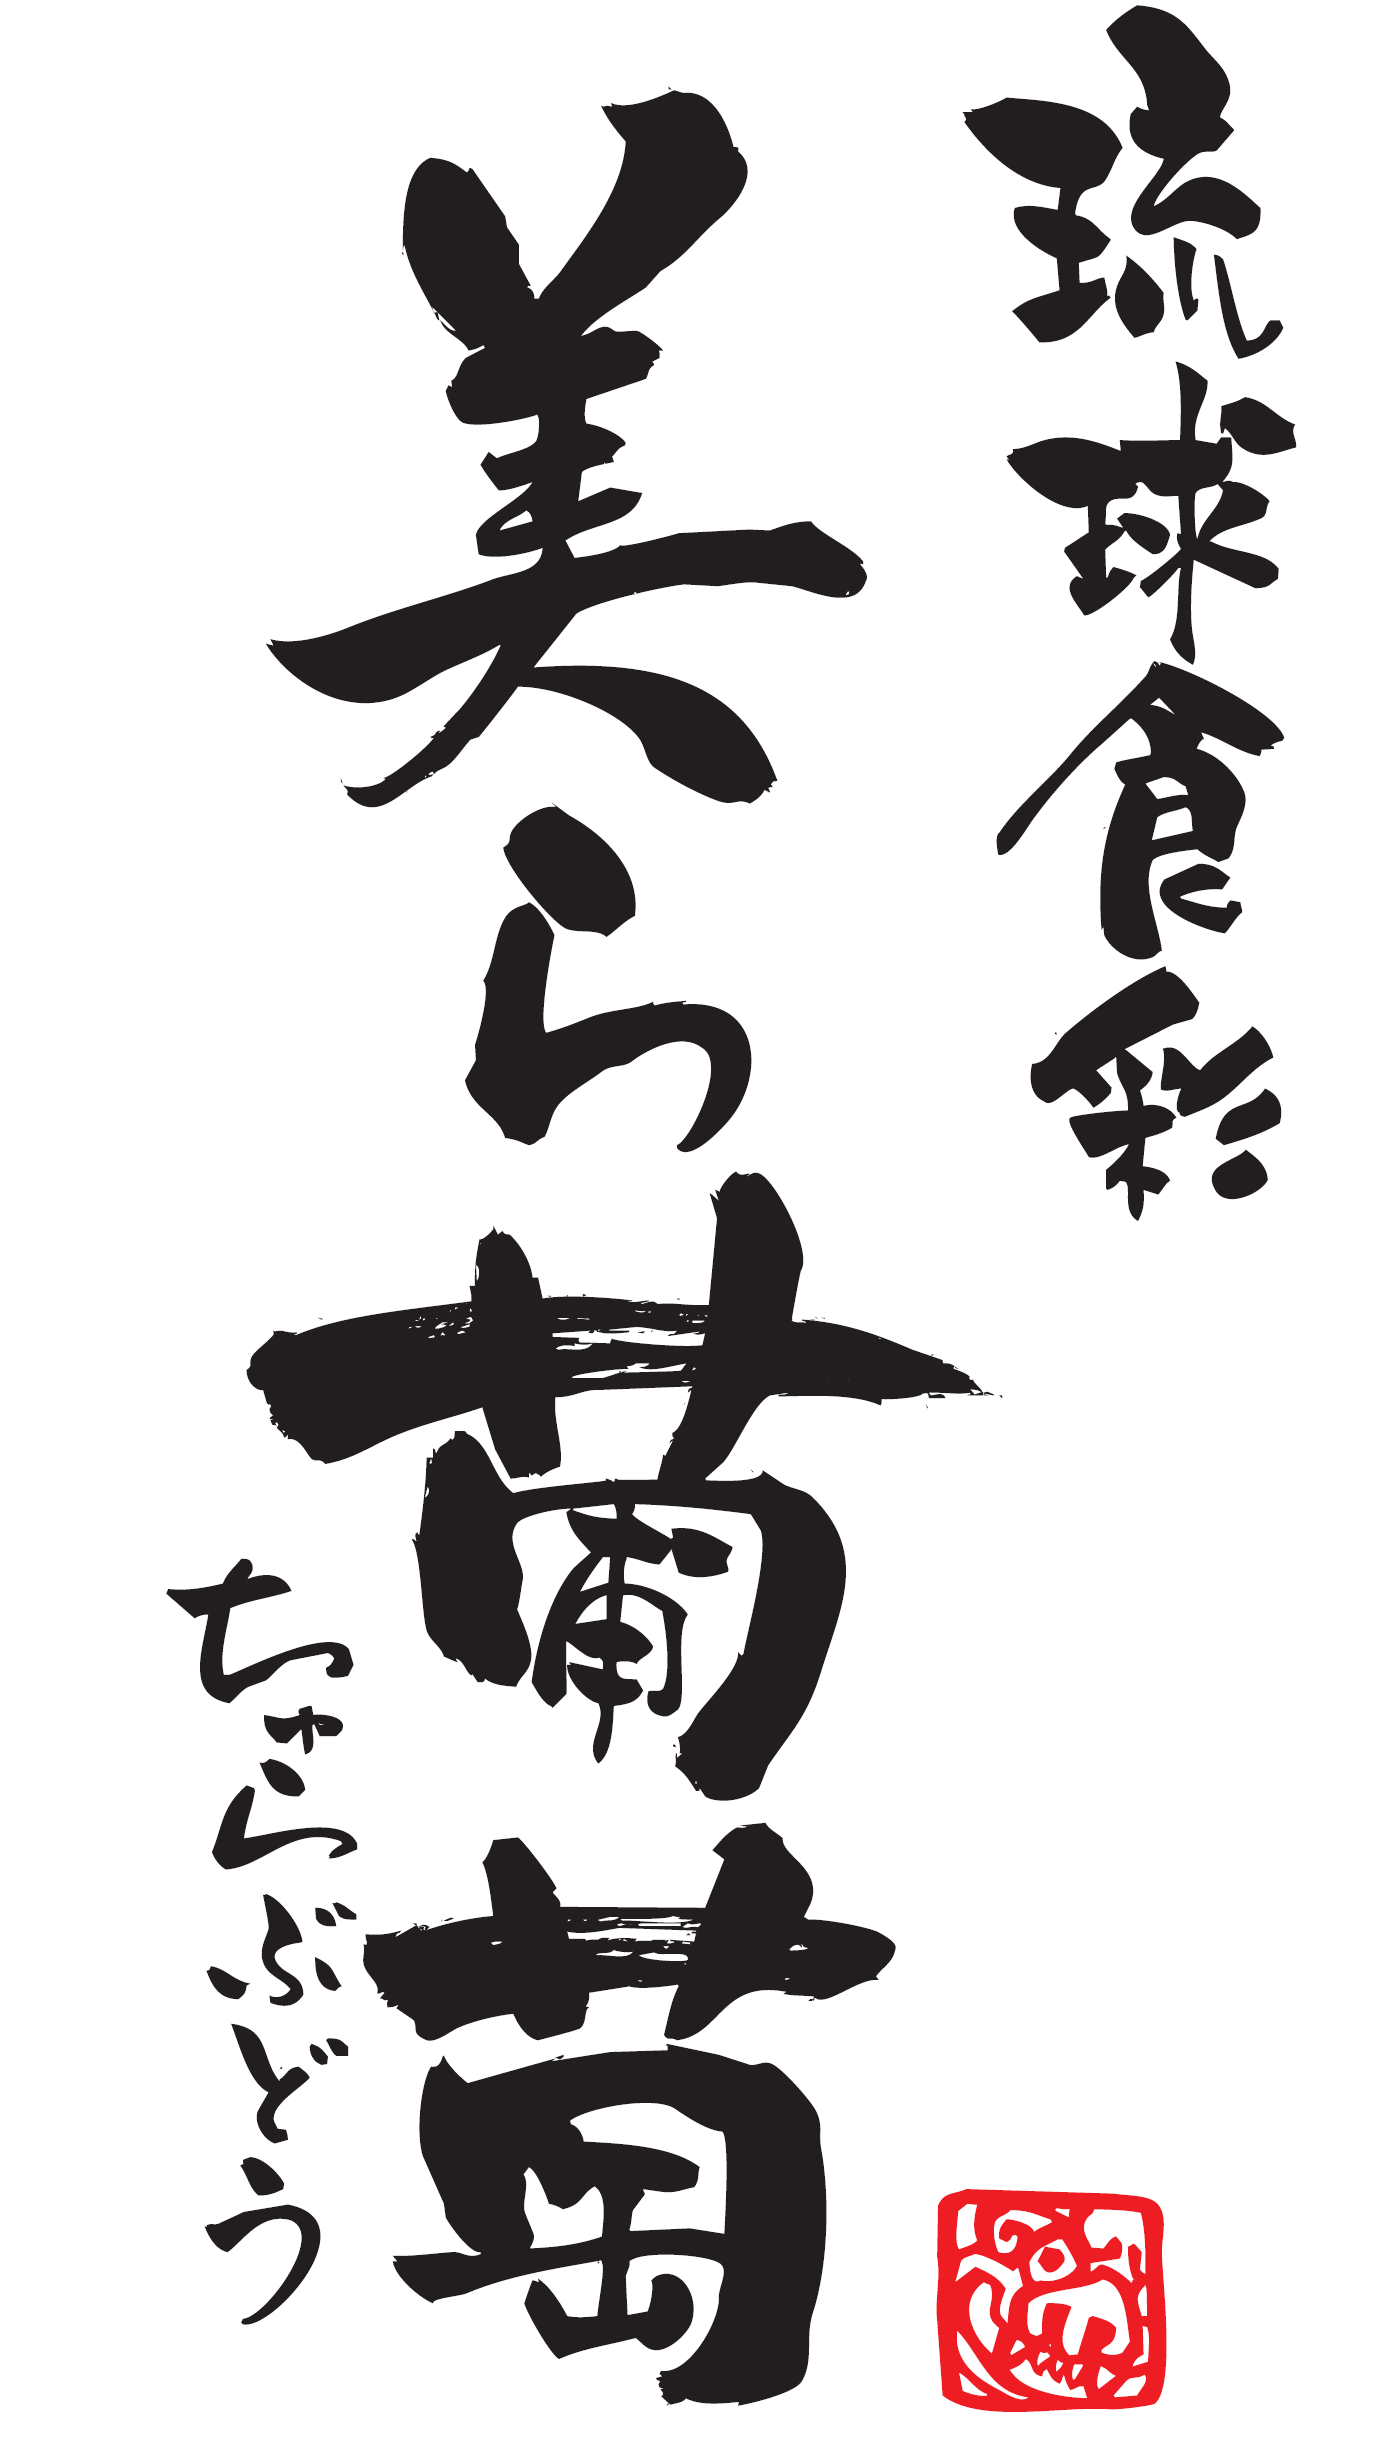 琉球食彩
美ら葡萄
ちゃんぶどう